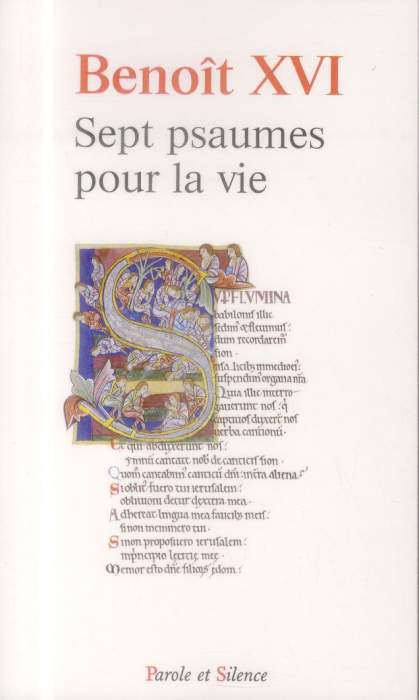 Benoît XVI
Sept psaumes
pour la vie
SUP FLVMINA
babilonis illic
sedim' & fleuimus:
dum recordarem̄
sion.
In salicib; in medio ei':
suspendim' organa n̄ra
Quia illic interro-
gauerunt nos: q̇
captiuos duxert̄ nos
uerba cantionū.
Et qui abduxerunt nos:
ymnū cantate nob̄ de canticis sion.
Quom̄ cantabim' canticū dn̄i: in terra aliena:
Si oblit' fuero tui ierusalem:
obliuioni detur dextera mea.
Adhereat lingua mea faucib; meis:
si non meminero tui.
Si non proposuero ierusalem:
in principio leticię meę.
Memor esto dn̄e filior̄ edom:
Parole et Silence